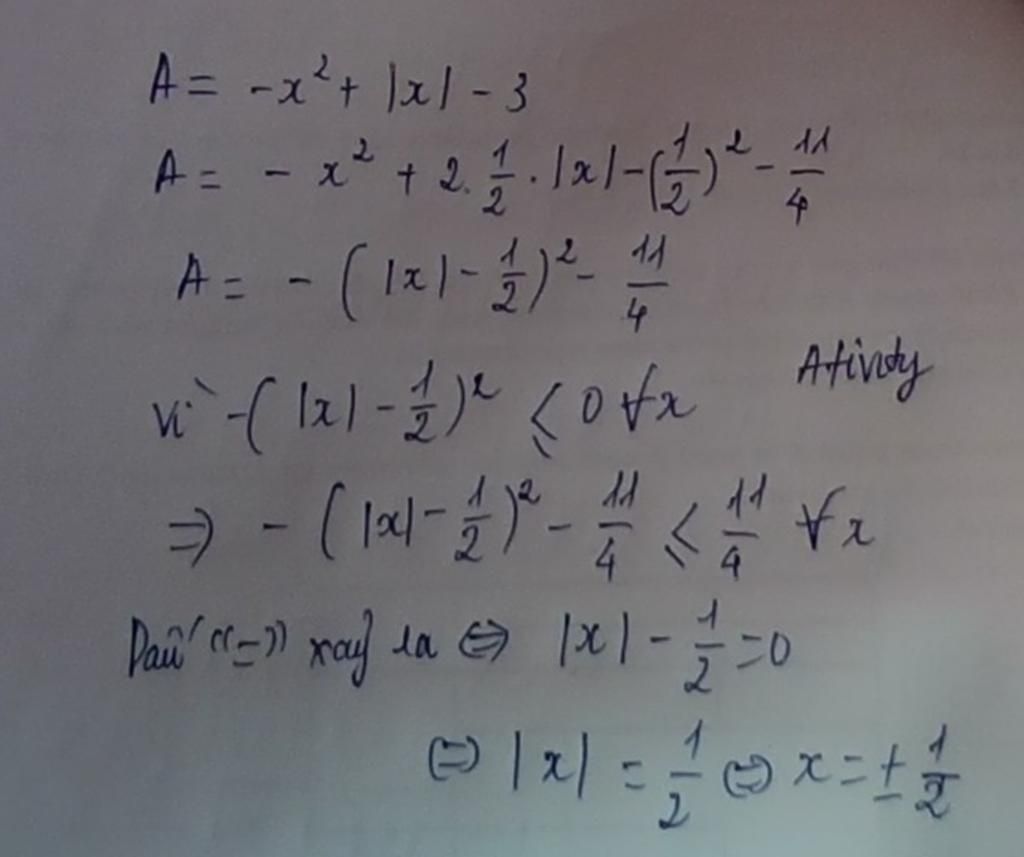 A = -x² + |x| - 3
A = - x² + 2. 1/2 . |x| - (1/2)² - 11/4
A = - ( |x| - 1/2 )² - 11/4
Vì - ( |x| - 1/2 )² ⩽ 0 ∀x
Ativity
⇒ - ( |x| - 1/2 )² - 11/4 ⩽ 11/4 ∀x
Dấu "=" xảy ra ⇔ |x| - 1/2 = 0
⇔ |x| = 1/2 ⇔ x = ± 1/2